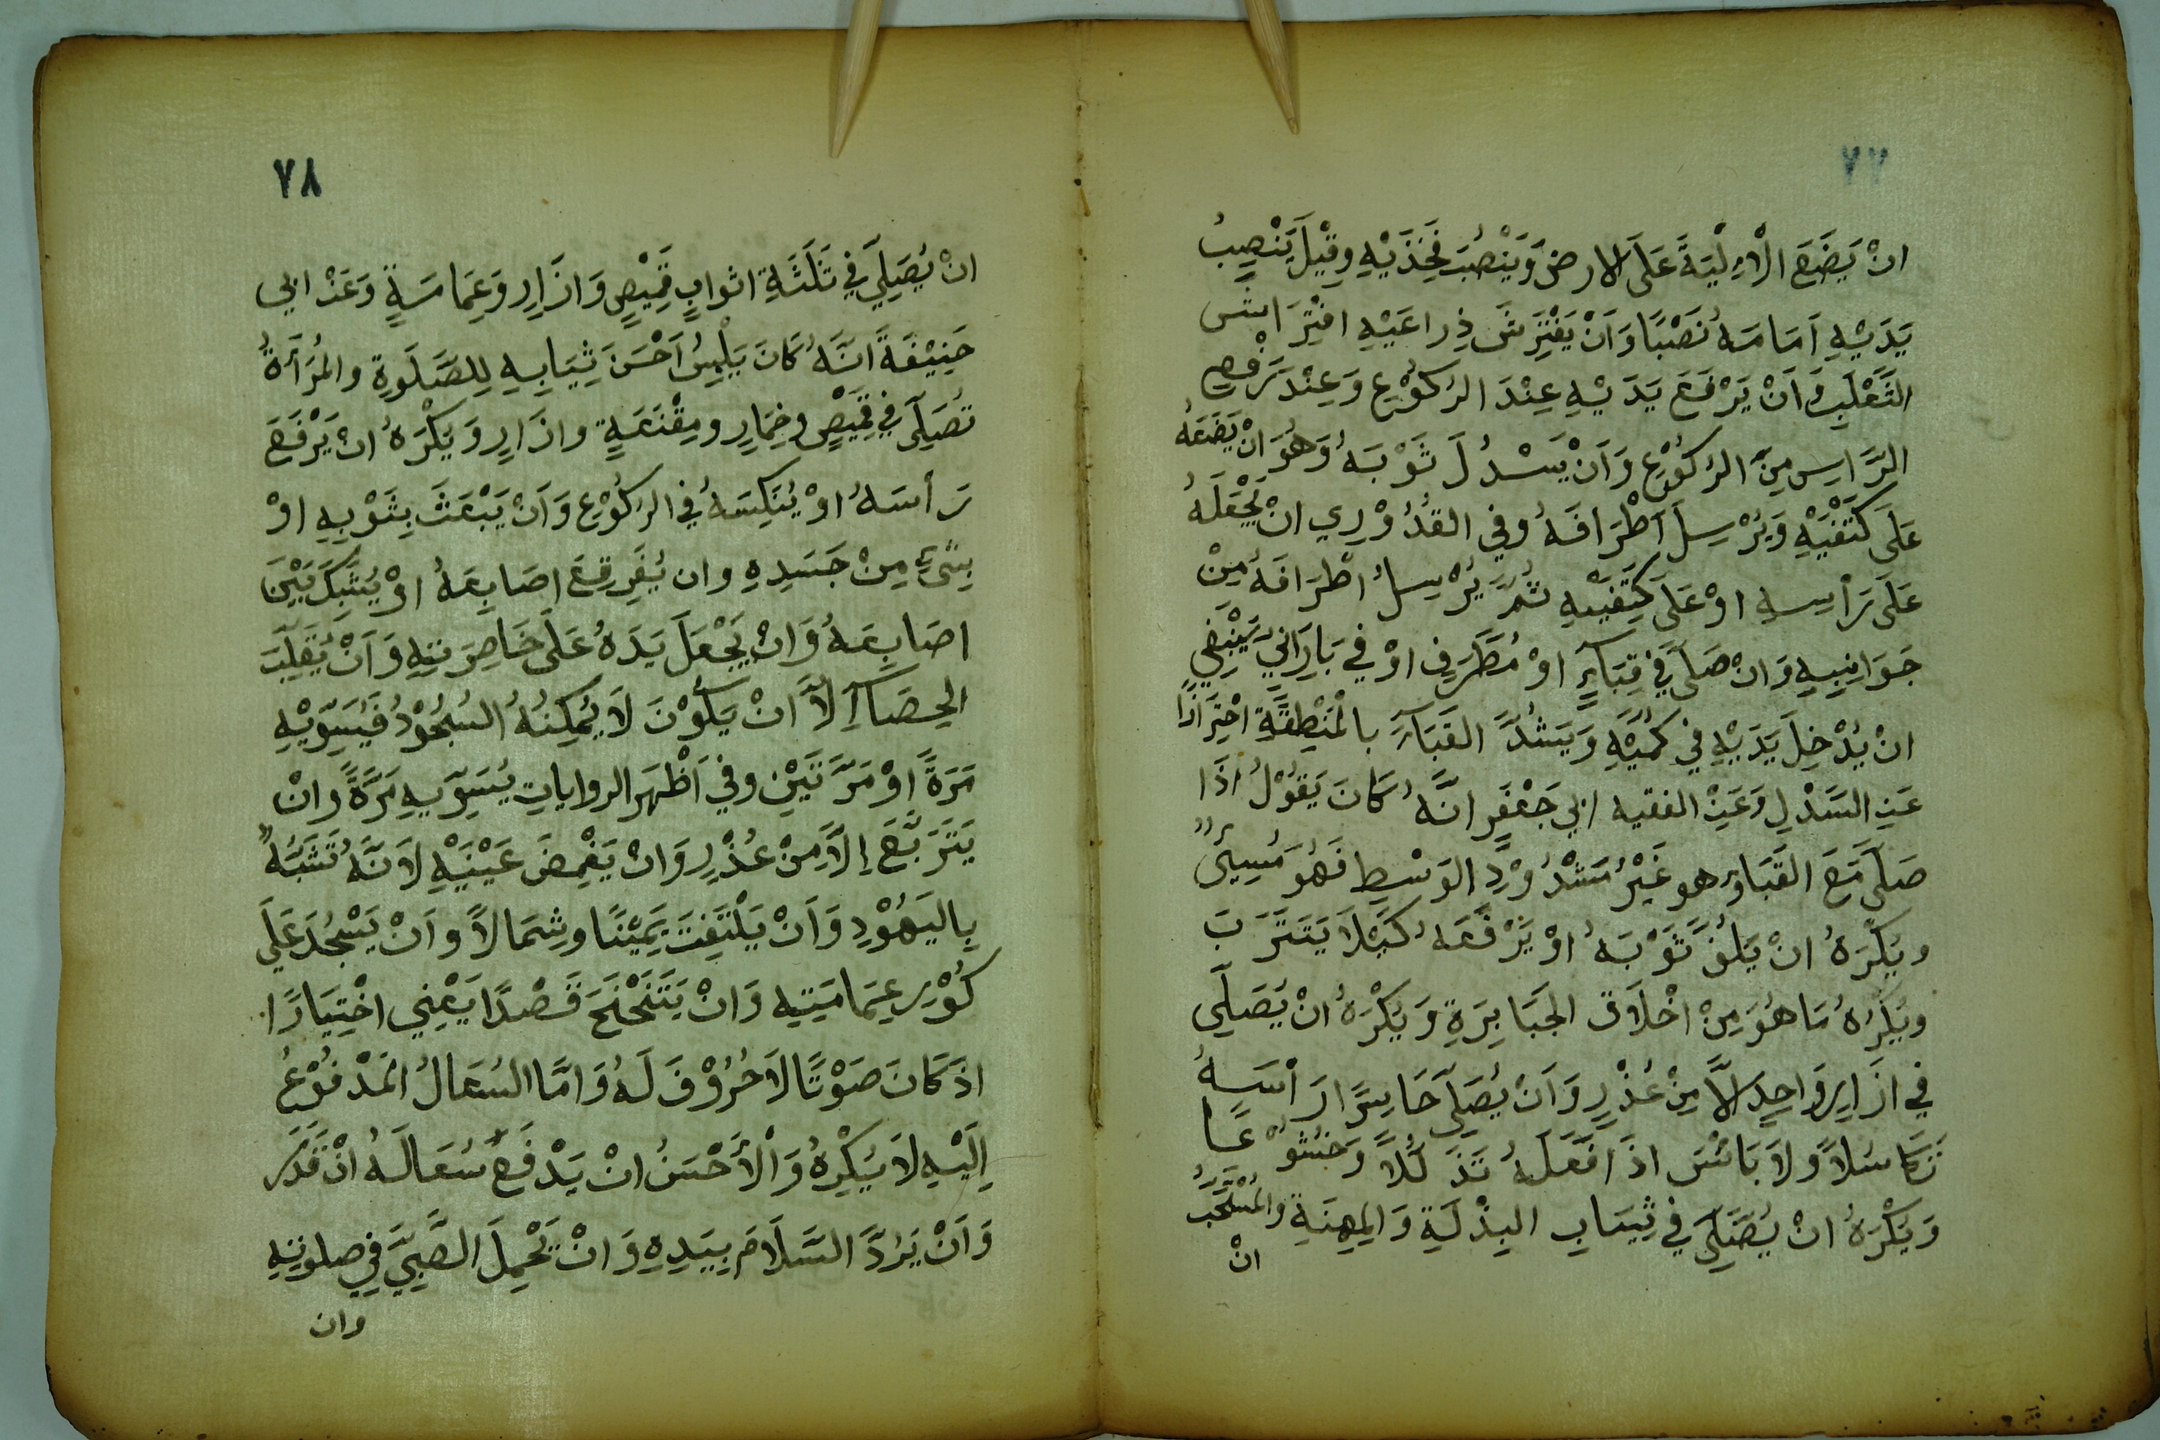 ٧٧
انْ يَضَعَ الْاِلْيَةَ عَلَى الارضِ وَيَنْصُبَ فَخَذَيْهِ وقِيْلَ يَنْصِبُ
يَدَيْهِ اَمَامَهُ نَصْبًا وَاَنْ يَفْتَرِشَ ذِراعَيْهِ افْتِرَاشَ
الثَّعْلَبِ وَاَنْ يَرْفَعَ يَدَيْهِ عِنْدَ الرُكُوْعِ وَعِنْدَ رَفْعِ
الرَّاسِ مِنَ الرُكُوْعِ وَاَنْ يَسْدُلَ ثَوْبَهُ وَهُوَ انْ يَضَعَهُ
عَلَى كَتَفْيَهْ وَيُرْسِلَ اَطْرَافَهُ وفي القُدُوْرِي انْ يَجْعَلَهُ
عَلَى رَأسِهِ اوْ عَلَى كَتِفَيْهِ ثُمَّ يُرْسِلُ اطْرَافَهُ مِنْ
جَوَانِبِهِ وَانْ صَلَّى فِي قِبَاءٍ اوْ مُطَرَفٍ اوْ في بَارَانِيٍّ يَنْبَغِي
انْ يُدْخِلَ يَدَيْهِ في كُمَّيْهِ وَيَشُدَّ القَبَاءَ بالمَنْطِقَةِ احْتِرَازًا
عَنِ السَّدْلِ وَعَنِ الفقيه ابي جَعْفَرٍ انَّهُ كَانَ يَقُوْلُ اذَا
صَلَّى مَعَ القَبَاءِ وهو غَيْرُ مَشْدُوْدِ الوَسْطِ فَهُوَ مُسِيْءٌ
ويُكْرَهُ انْ يَلُفَّ ثَوْبَهُ اوْ يَرْفَعَهُ كَيْلَا يَتَتَرَّبَ
ويُكْرَهُ مَا هُوَ مِنْ اخْلَاقِ الجَبَابِرَةِ وَيُكْرَهُ انْ يُصَلِّي
في ازَارٍ وَاحِدٍ الاَّ مِنْ عُذْرٍ وَاَنْ يُصَلِّي حَاسِرًا رَاْسَهُ
تَكَاسُلاً ولَا بَاسَ اذَا فَعَلَهُ تَذَلُّلاً وَخُشُوْعًا
وَيُكْرَهُ انْ يُصَلِّي في ثِيَابِ البِذْلَةِ وَالمِهِنَةِ والمُسْتَحَبُّ
انْ
٧٨
انْ يُصَلِّيَ في ثَلَثَةِ اثوابٍ قَمِيْصٍ وَازَارٍ وَعِمَامَةٍ وَعَنْ ابي
حَنِيْفَةَ انَّهُ كَانَ يَلْبِسُ اَحْسَنَ ثِيَابِهِ لِلصَّلَوةِ والمُرَأَةُ
تُصَلِّى في قَمِيْصٍ وخِمَارٍ ومِقْنَعَةٍ وازَارٍ وَيُكْرَهُ انْ يَرْفَعَ
رَأسَهُ اوْ يُنَكِسَهُ في الرُكُوْعِ وَاَنْ يَبْعَثَ بِثَوْبِهِ اوْ
بِشَىْءٍ مِنْ جَسَدِهِ وان يُفَرقِعَ اصَابِعَهُ اوْ يُشَبِّكَ بَيْنَ
اصَابِعَهُ وَانْ يَجْعَلَ يَدَهُ عَلَى خَاصِرَتِهِ وَاَنْ يُقَلِّبَ
الحِصَا اِلاَّ انْ يَكُوْنَ لَا يُمْكِنُهُ السُجُوْدُ فَيُسَوِّيْهِ
مَرَةً اوْ مَرَّتَيْنِ وفي اَظْهَرِ الرواياتِ يُسَوِّيهِ مَرَّةً وانْ
يَتَرَبَّعَ اِلاَّ مِنْ عُذْرٍ وَانْ يَغْمِضَ عَيْنَيْهِ لاَنَّهُ تَشَبُّهٌ
بِاليَهُوْدِ وَاَنْ يَلْتَفِتَ يَمِيْنًا وشِمَالاً واَنْ يَسْجُدَ عَلَى
كُوْرِ عِمَامَتِهِ وَانْ يَتَنَحْنَحَ قَصْدًا يَعْنِي اخْتِيَارًا
اذَ كَانَ صَوْتًا لَا حُرُوْفَ لَهُ وَامَّا السُعَالُ المَدْفُوْعُ
اِلَيْهِ لَا يُكْرِهُ وَالْاَحْسَنُ انْ يَدْفَعَ سُعَالَهُ انْ قَدَرَ
وَاَنْ يَرُدَّ السَّلَامَ بِيَدِهِ وَانْ يَحْمِلَ الصَّبِيَّ فِي صلوتِهِ
وان